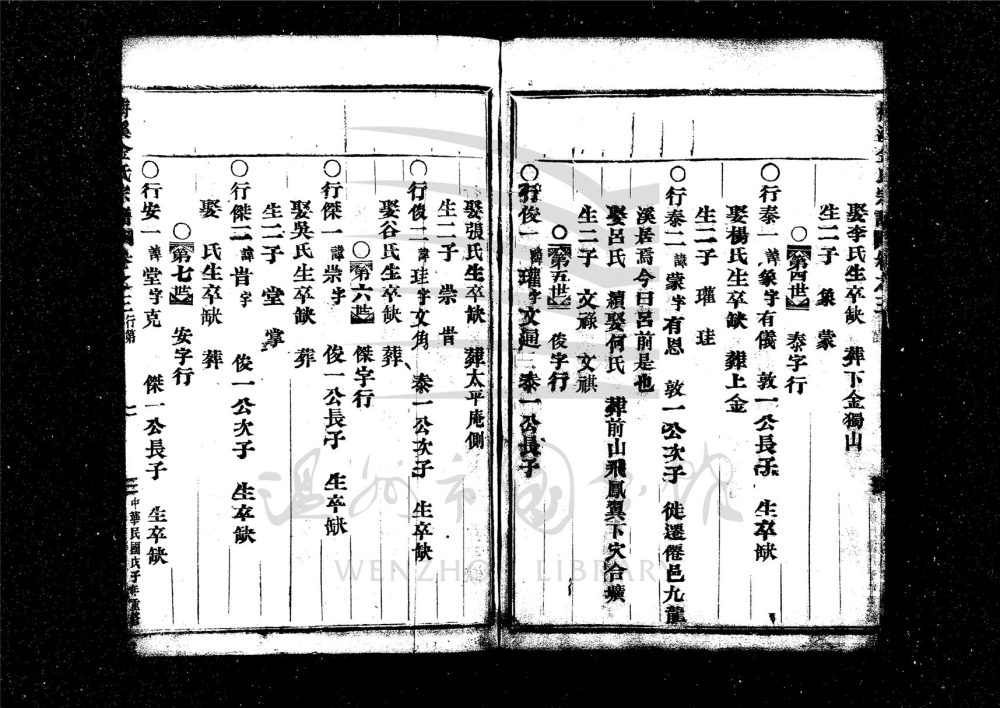 娶李氏生卒缺 葬下金獨山
生二子 象 蒙
○第四世 泰字行
○行泰一 諱象字有儀 敦一公長子 生卒缺
娶楊氏生卒缺 葬上金
生二子 瓘 珪
○行泰二 諱蒙字有恩 敦一公次子 徙遷僊邑九龍
溪居焉今曰呂前是也
娶呂氏 續娶何氏 葬前山飛鳳翼下穴合壙
生二子 文祿 文祺
○第五世 俊字行
○行俊一 諱瓘字文 泰一公長子
娶張氏生卒缺 葬太平庵側
生二子 崇 旹
○行俊二 諱珪字文角 泰一公次子 生卒缺
娶谷氏生卒缺 葬
○第六世 傑字行
○行傑一 諱崇字 俊一公長子 生卒缺
娶吳氏生卒缺 葬
生二子 堂 掌
○行傑二 諱旹字 俊一公次子 生卒缺
娶 氏生卒缺 葬
○第七世 安字行
○行安一 諱堂字克 傑一公長子 生卒缺
金氏宗譜 行第
中華民國
温州市图书馆
WENZHOU LIBRARY